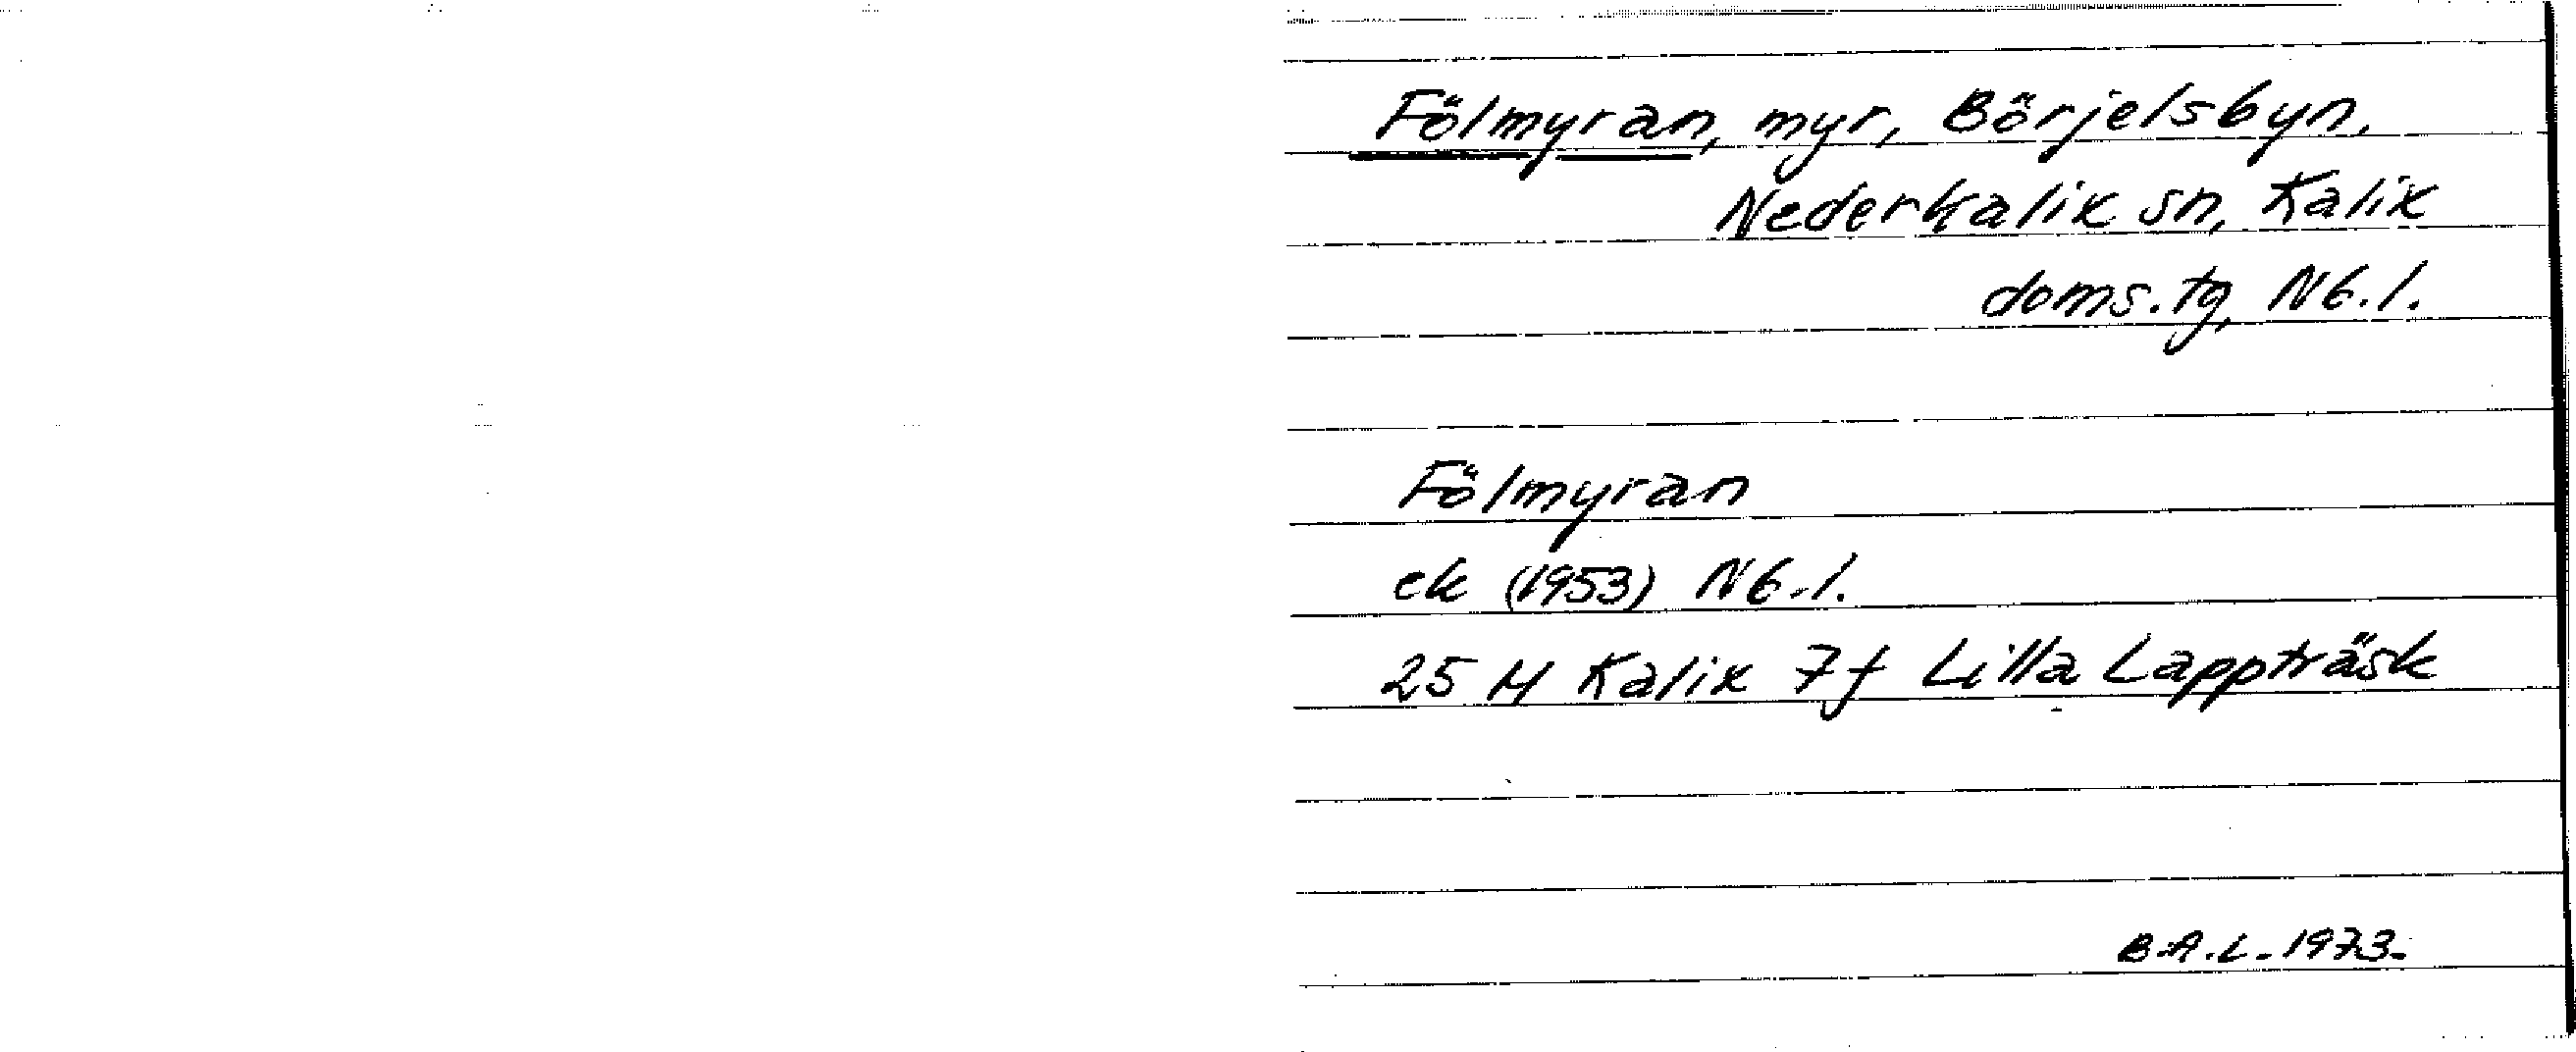 Fölmyran, myr, Börjelsbyn,
Nederkalix sn, Kalix
doms.tg, Nb.l.
Fölmyran
ek (1953) Nb.l.
25 M Kalix 7f Lilla Lappträsk
B.A.L. 1973.